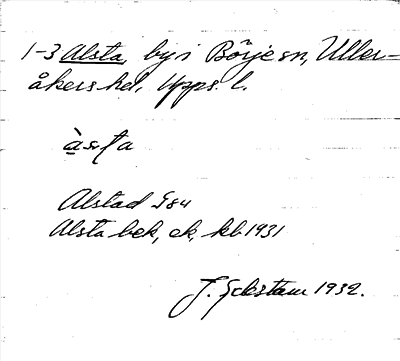 1-3 Alsta, by i Börje sn, Uller-
åkers hd, Upps. l.
àsta
Alstad G84
Alsta bek, ek, kb 1931
J. 1932.